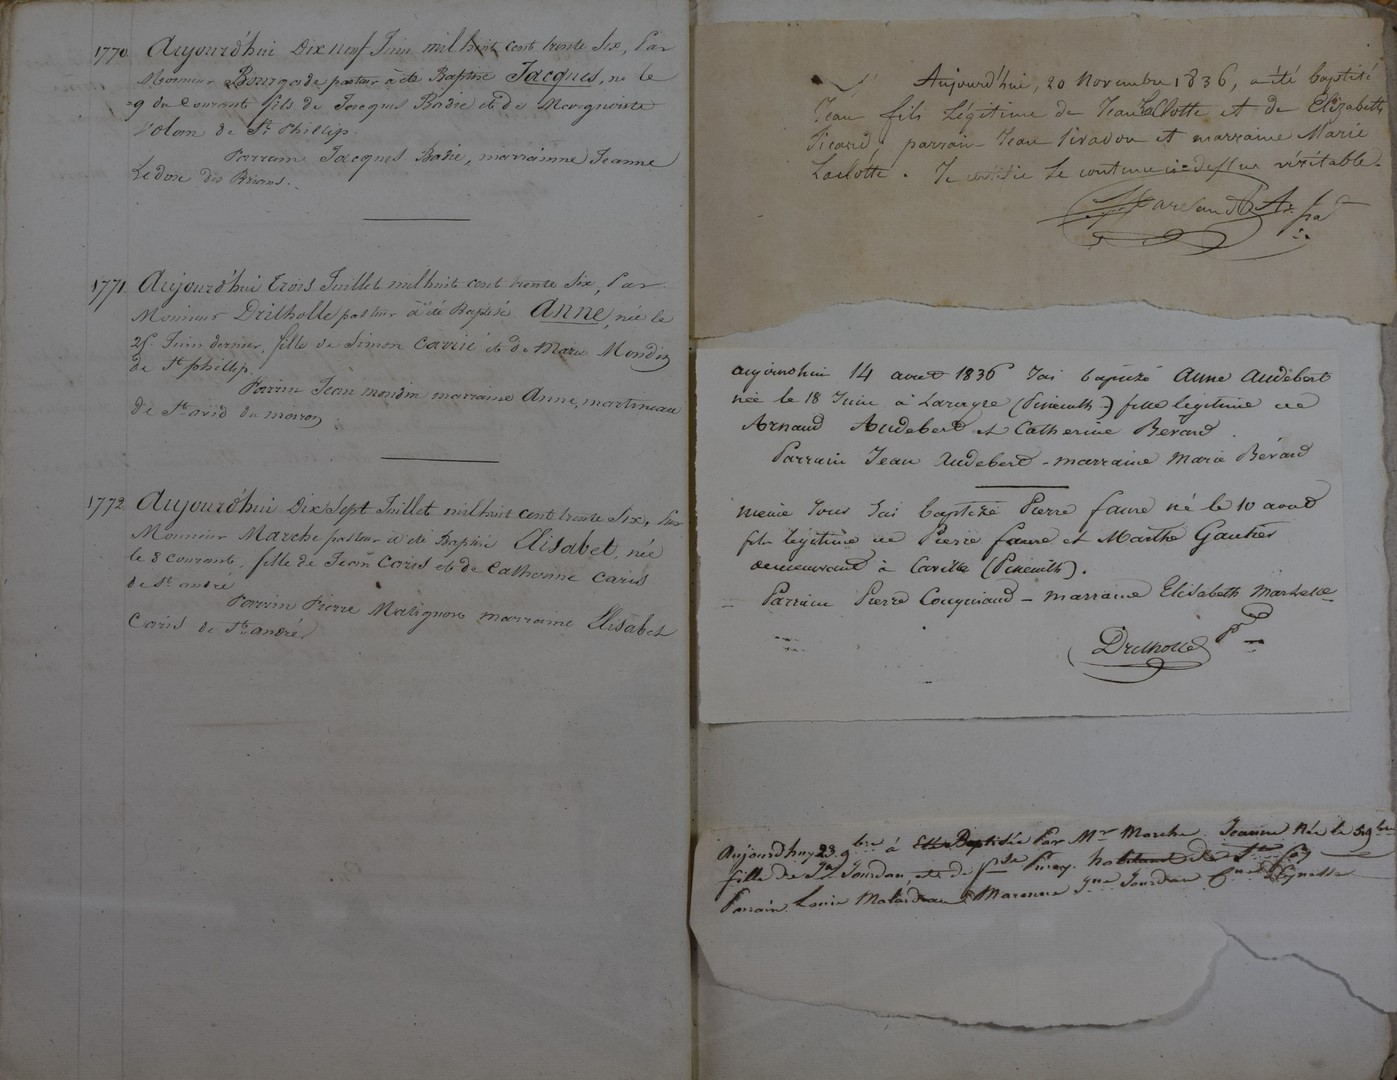 1770 Aujourd'hui Dix neuf Juin mil huit cent trente Six, Par
Monsieur Bourgade pasteur à été Baptisé Jacques, né le
9 du Courant fils de Jacques Badie et de Marguerite
de St Phillip.
Parrain Jacques Badie, marrainne Jeanne
Ledoux des
1771 Aujourd'hui trois Juillet mil huit cent trente Six, Par
Monsieur Drilholle pasteur à été Baptisé Anne, née le
25 Juin dernier, fille de Simon Carrié et de Marie Mondin
de St phillip.
Parrin Jean mondin marraine Anne martineau
de St avid du moiron
1772 Aujourd'hui Dix Sept Juillet mil huit cent trente Six, Par
Monsieur Marche pasteur à été Baptisé Elisabet, née
le 8 courant, fille de Jean Caris et de Catherine Caris
de St andré
Parrin Pierre Matignon marraine Elisabet
Caris de St andré
Aujourd'hui, 20 Novembre 1836, a été baptisé
Jean fils Légitime de Jean Laclotte et de Elizabeth
Picard, parrain Jean Pivadou et marraine Marie
Laclotte. Je certifie le contenu ci-dessus véritable.
aujourdhui 14 aout 1836 J'ai baptizé Anne Audebert
née le 18 Juin à (Pineuilh) fille légitime de
Arnaud Audebert et Catherine Bérard
Parrain Jean Audebert - marraine Marie Bérard
même Jour J'ai baptizé Pierre faure né le 10 aout
fils légitime de Pierre faure et Marthe Gautier
demeurant à (Pineuilh).
Parrain Pierre Couyniaud - marraine Elisabeth
Drilholle p
Aujourdhuy 23 9bre à Baptisée Par Mr Marche Jeanne Née le 9bre
fille de Jn Jourdan et de habitant de
Parrain Louis Matardeau Marenne Jourdan